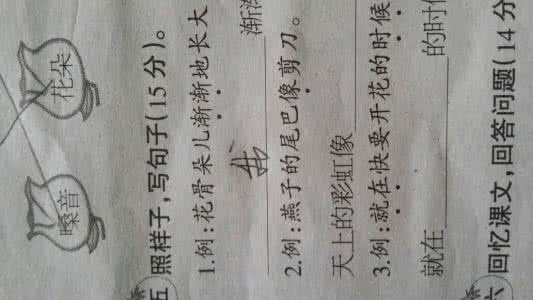 嗓音 花朵
五 照样子，写句子(15分)。
1.例：花骨朵儿渐渐地长大
我 渐渐
2.例：燕子的尾巴像剪刀。
天上的彩虹像
3.例：就在快要开花的时候
就在 的时
六 回忆课文，回答问题(14分